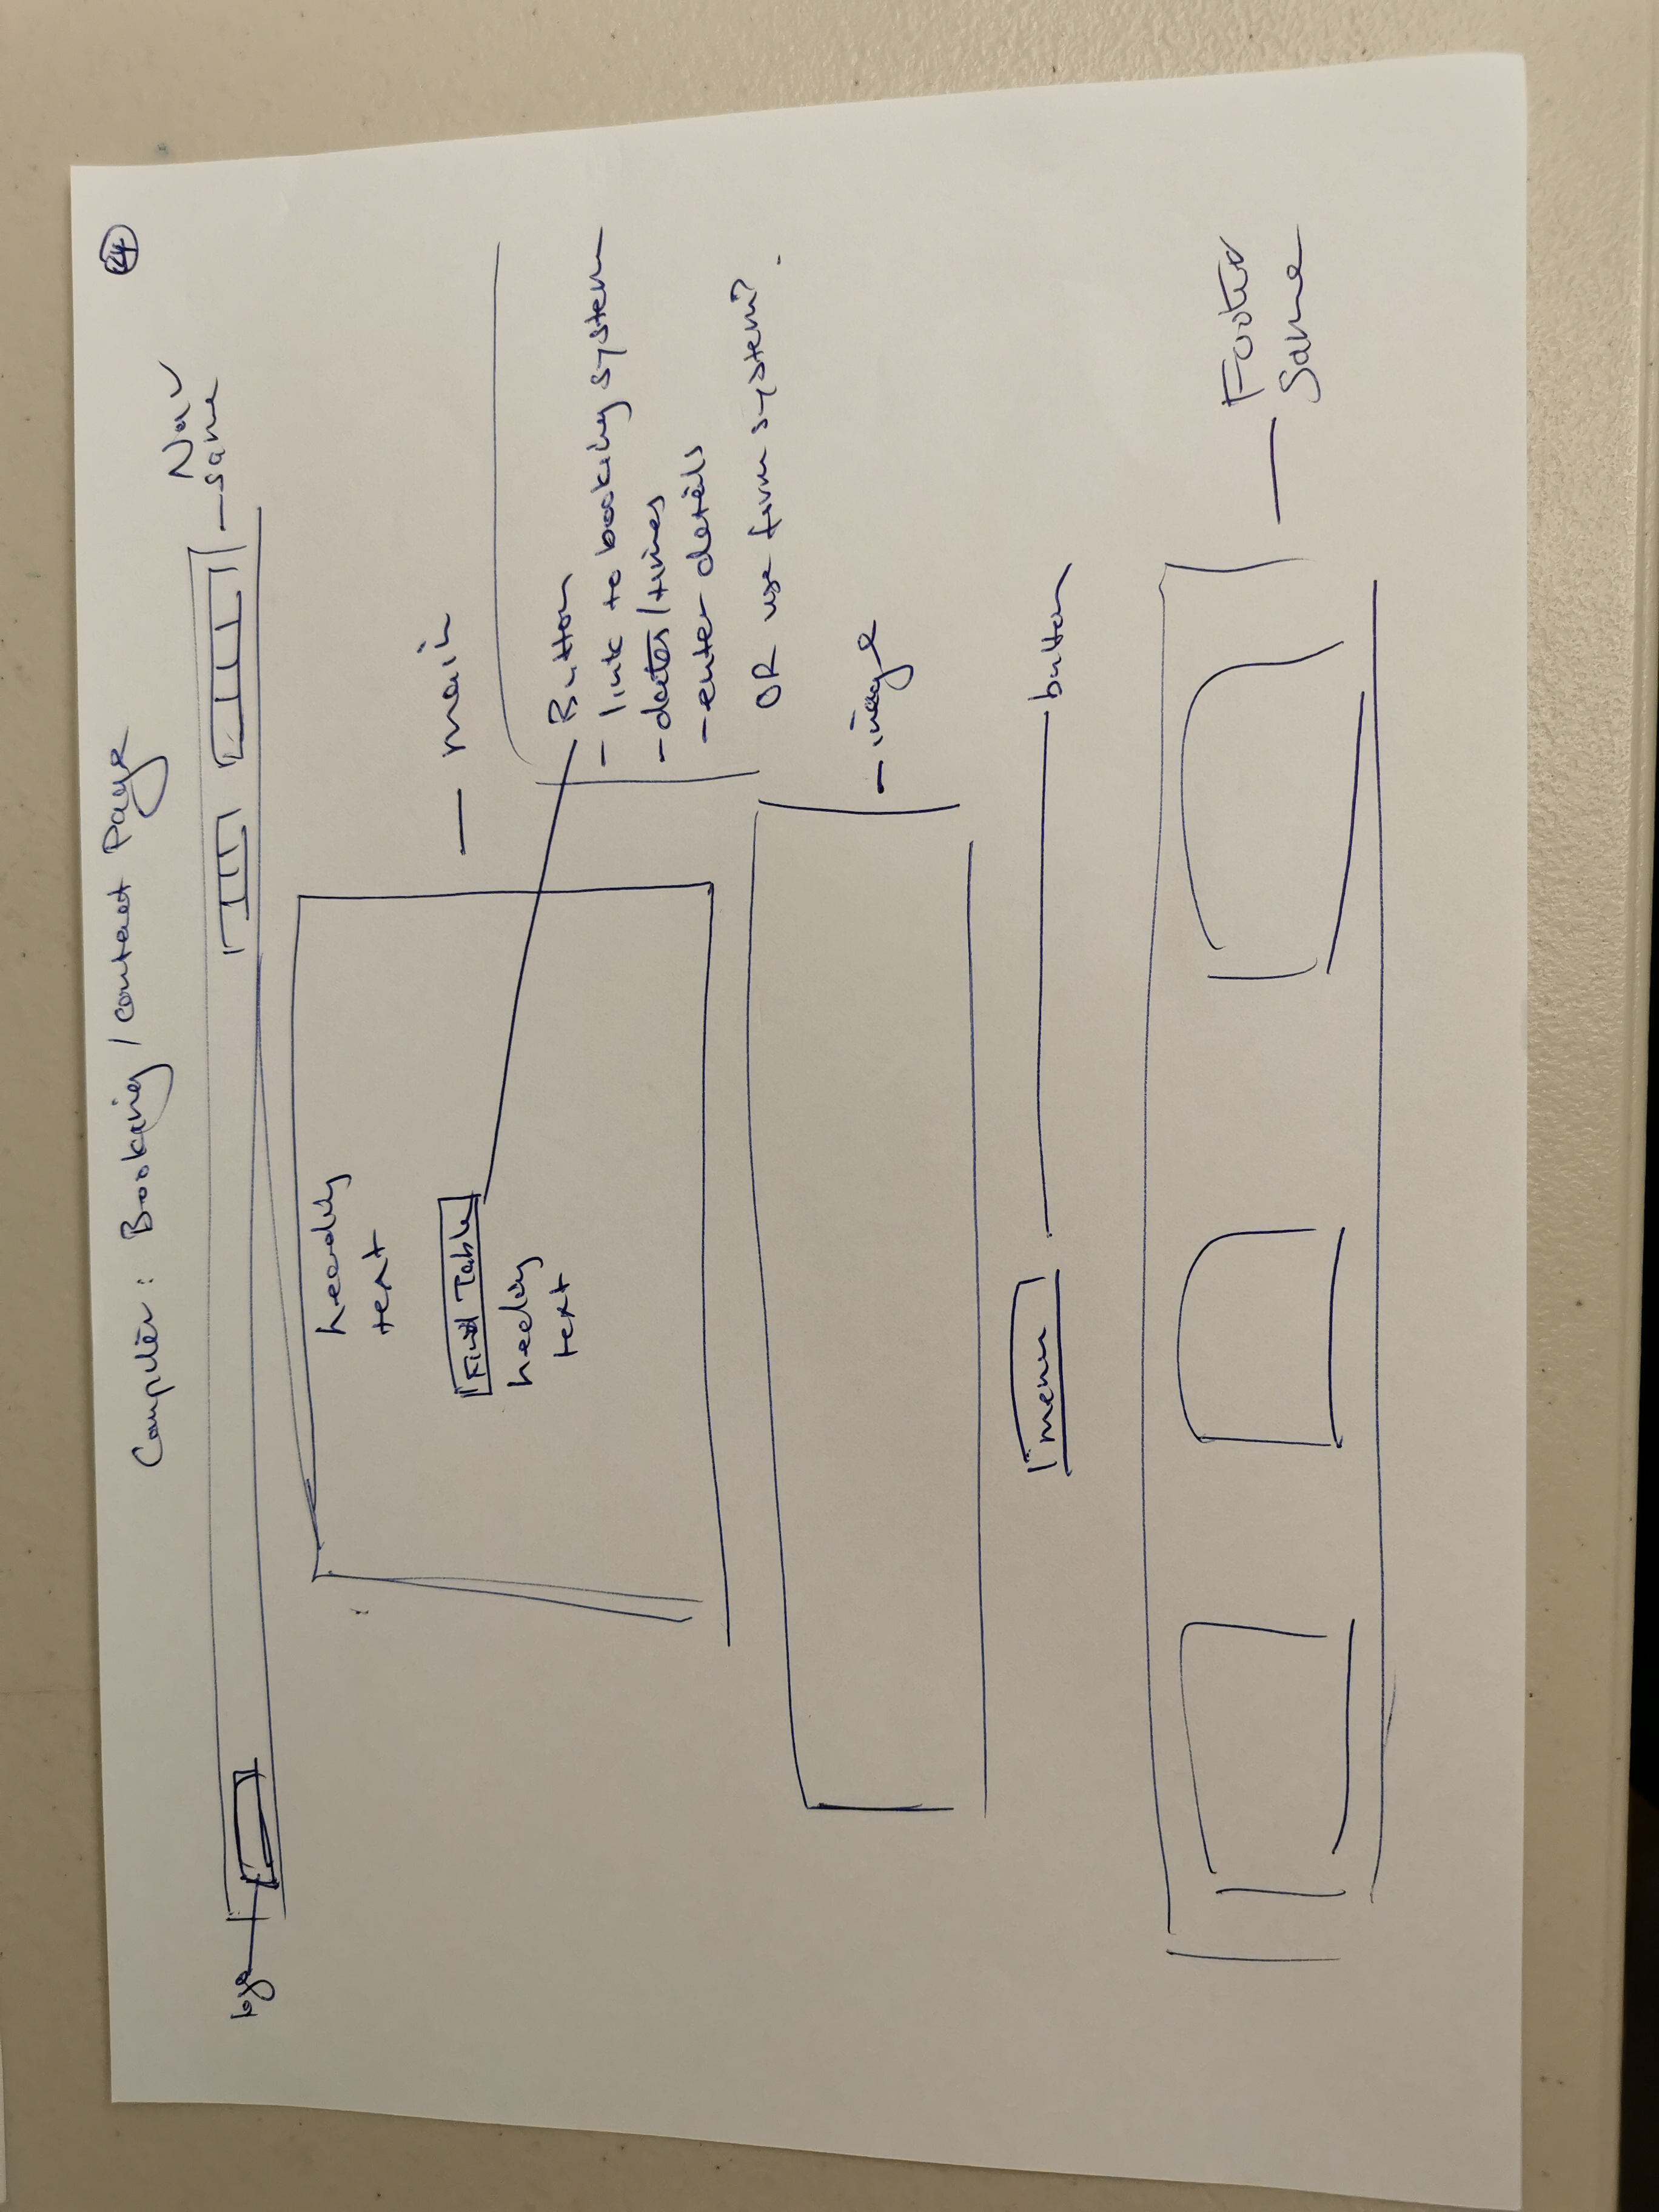 Computer : Booking / contact Page
24
logo
Nav
- same
heading
text
- main
Find Table
heading
text
Button
- link to booking system
- dates / times
- enter details
OR use form system?
- image
menu
button
Footer
Same